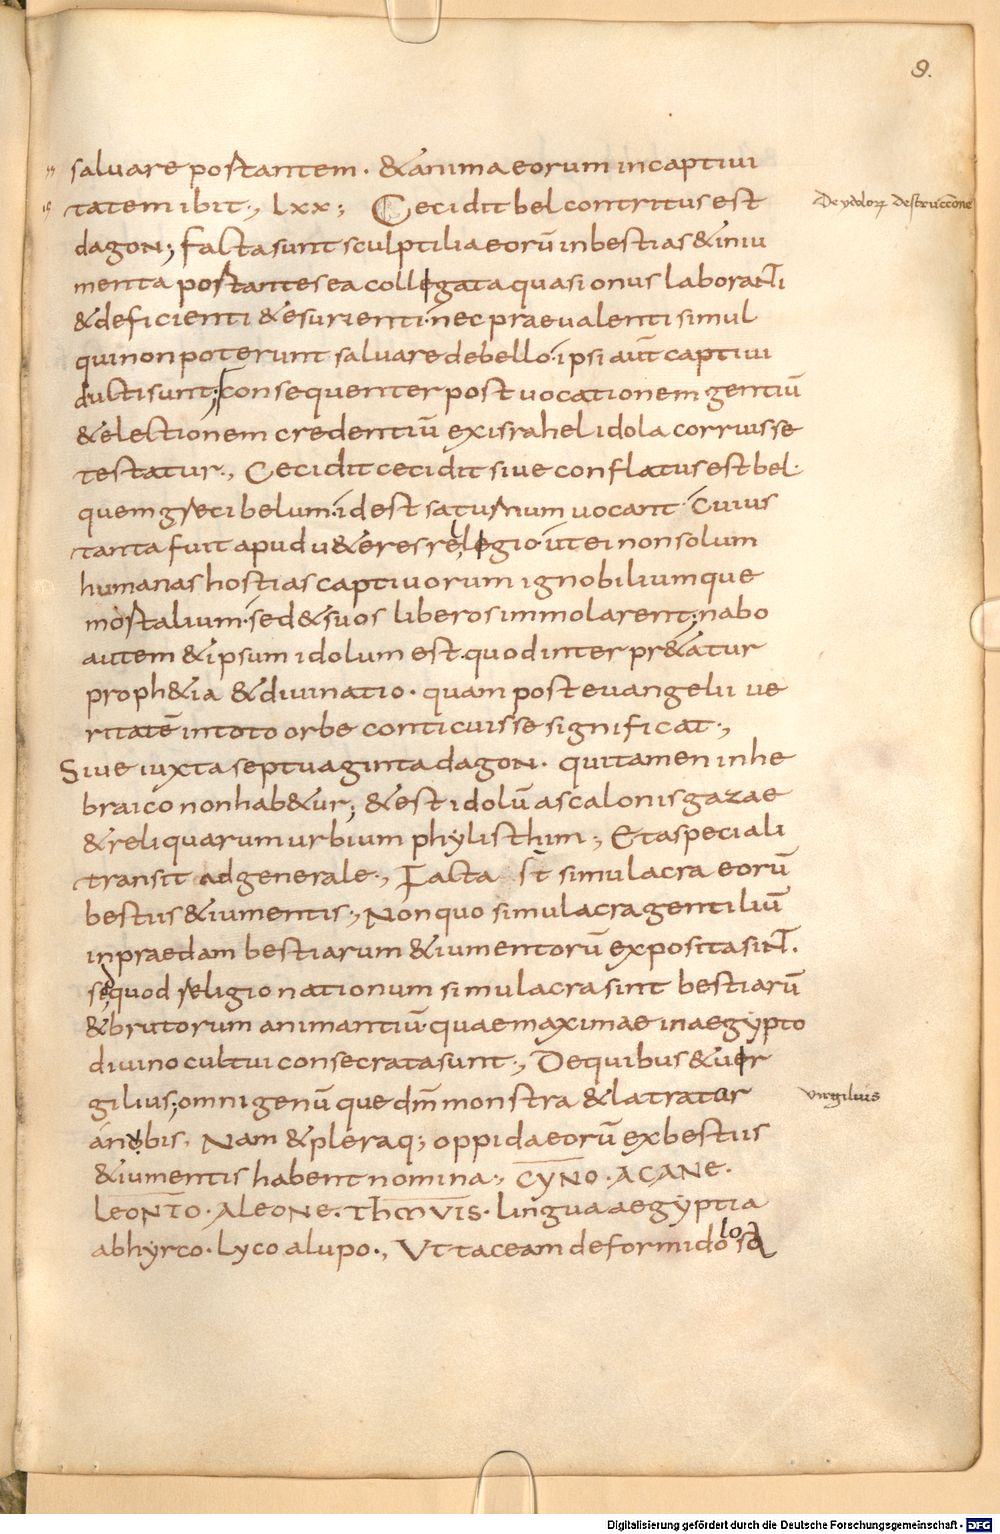 9.
saluare portantem. & anima eorum in captiui
De ydolorꝝ destruccōne
tatem ibit., Lxx; Cecidit bel contritus est
dagon; facta sunt sculptilia eorū in bestias & iniu
menta portantes ea collegata quasi onus laboranti
& deficienti & esurienti. nec praeualenti simul
qui non poterunt saluare de bello. ipsi aūt captiui
ducti sunt; Consequenter post uocationem gentiū
& electionem credentiū ex israhel idola corruisse
testatur., Cecidit cecidit siue conflatus est bel.
quem greci belum. id est saturnum uocant. Cuius
tanta fuit apud u&eres relegio. ut ei non solum
humanas hostias captiuorum ignobiliumque
mortalium. sed & suos liberos immolarent; nabo
autem & ipsum idolum est. quod interpr&atur
proph&ia & diuinatio. quam post euangelii ue
ritatē in toto orbe conticuisse significat.,
Siue iuxta septuaginta dagon. qui tamen in he
braico non hab&ur; & est idolū ascalonis gazae
& reliquarum urbium phylisthim; Et a speciali
transit ad generale., Facta st̄ simulacra eorū
bestiis & iumentis., Non quo simulacra gentiliū
in praedam bestiarum & iumentorū exposita sint.
sed quod religio nationum simulacra sint bestiarū
& brutorum animantiū. quae maximae in aegypto
diuino cultui consecrata sunt., De quibus & uer
gilius; omnigenū que dm̄ monstra & latratur
virgilius
anobis. Nam & pleraq; oppida eorū ex bestiis
& iumentis habent nomina., CYNO. A CANE.
LEONTO. A LEONE. Thmuis. lingua aegyptia
ab hyrco. Lyco a lupo., Ut taceam de formidolosa
Digitalisierung gefördert durch die Deutsche Forschungsgemeinschaft - DFG